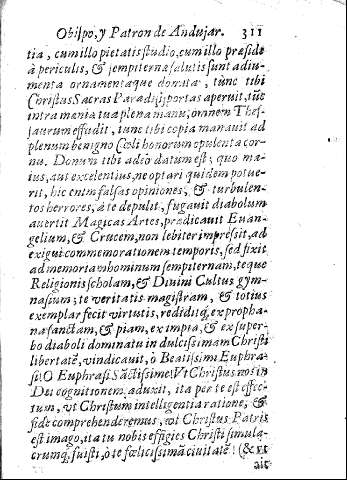 Obispo, y Patron de Andujar. 311
tia, cum illo pietatis studio, cum illo præside
à periculis, & sempiterna salutis sunt adiu-
menta ornamentaque donata, tũnc tibi
Christus Sacras Paradisi portas aperuit, tũc
intra mania tua plena manu, omnem Thes-
saurum effudit, tunc tibi copia manauit ad
plenum benigno Cœli honorum opulenta cor-
nu. Donum tibi adeò datum est; quo ma-
ius, aut excelentius, ne optari quidem potue-
rit, hic enim falsas opiniones, & turbulen-
tos herrores, à te depulit, fugauit diabolum
auertit Magicas Artes, prædicauit Euan-
gelium, & Crucem, non lebiter impressit, ad
exigui commemorationem temporis, sed fixit
ad memoriam hominum sempiternam, teque
Religionis scholam, & Diuini Cultus gym-
nasium; te veritatis magistram, & totius
exemplar fecit virtutis, redidiq́, ex propha-
na sanctam, & piam, ex impia, & ex super-
bo diaboli dominatu in dulcissimam Christi
libertatẽ, vindicauit, ò Beatissimi Euphra-
si! O Euphrasi Sãctissime! Vt Christus nos in
Dei cognitionem aduxit, ita per te est effec-
tum, vt Christum intelligentia ratione, &
fide comprehenderemus, vt Christus Patris
est imago, ita tu nobis effigies Christi simula-
crumq́, fuisti, ò te fœlicissimã ciuitatẽ! (& vt
ait